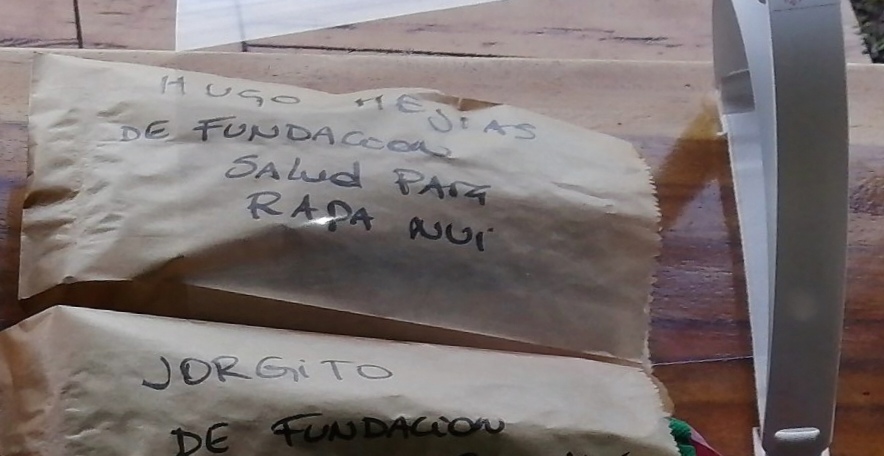 HUGO MEJiAS
DE FUNDACION
SALUD PARA
RAPA NUi
JORGiTO
DE FUNDACION